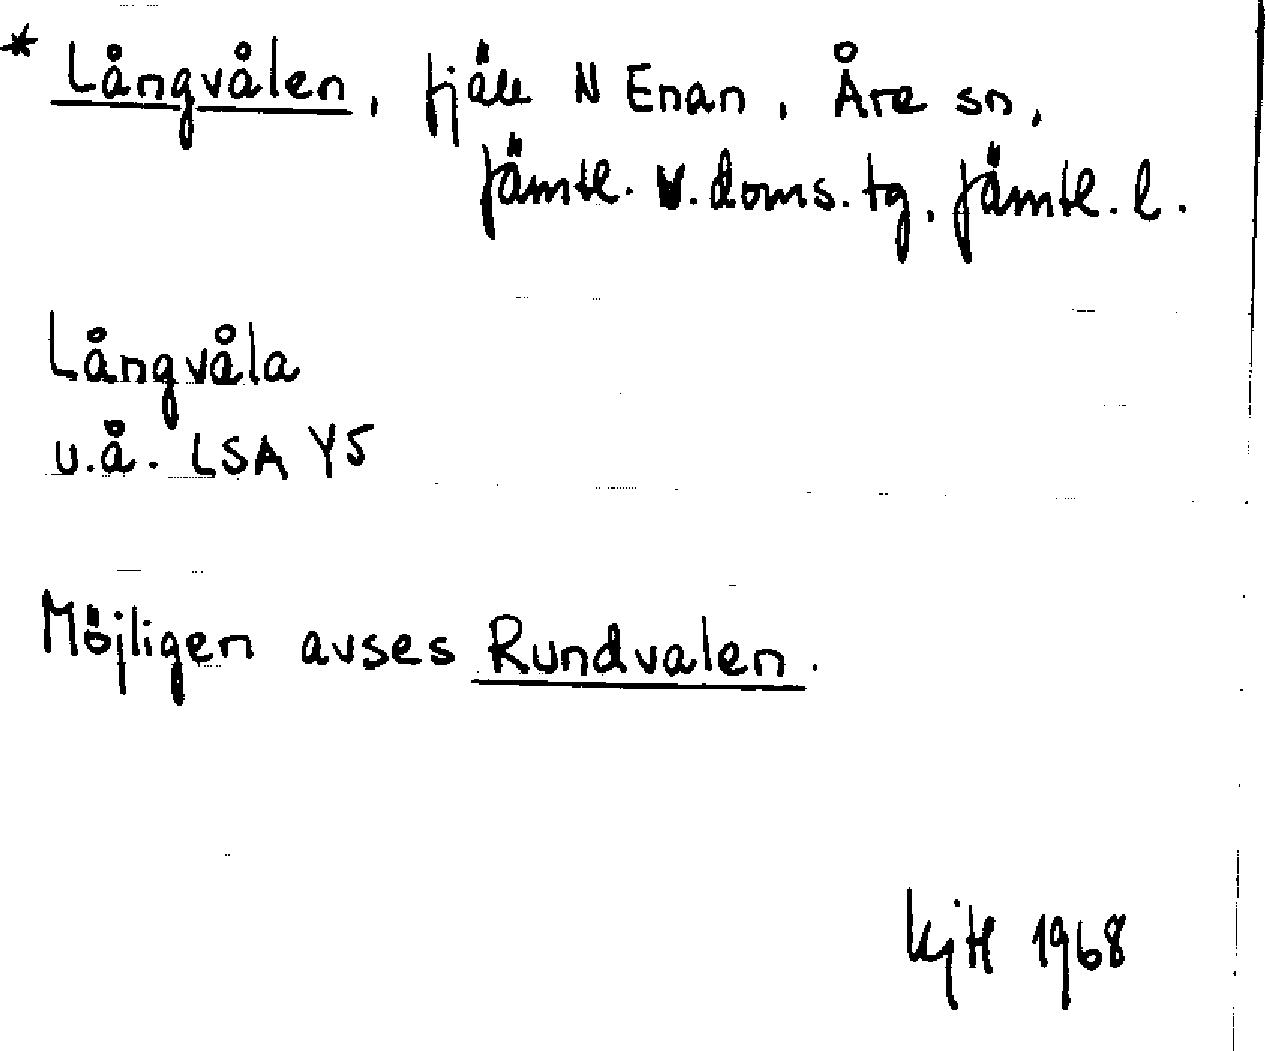 * Långvålen, fjäll N Enan, Åre sn,
Jämtl. V. doms. tg, Jämtl. l.
Långvåla
u.å. LSA Y5
Möjligen avses Rundvalen.
KjH 1968